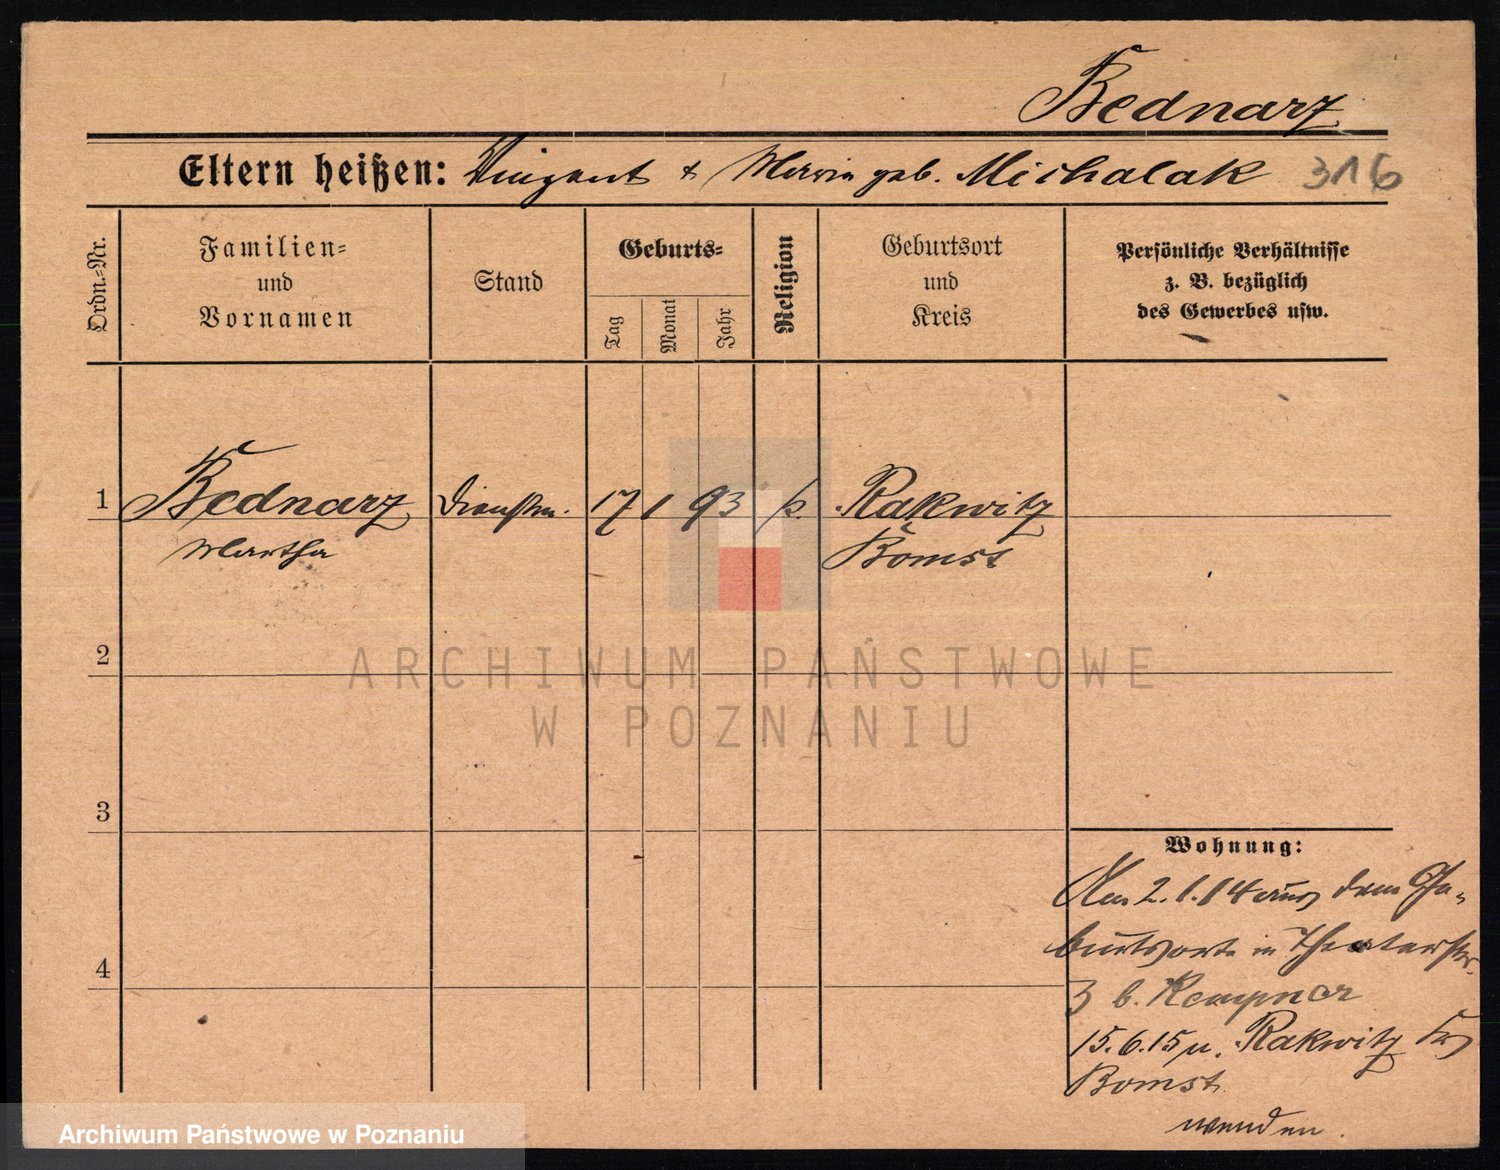 Bednarz
Eltern heißen: Vinzent & Maria geb. Michalak 316
Ordn.-Nr.
Familien-
und
Vornamen
Stand
Geburts-
Tag
Monat
Jahr
Religion
Geburtsort
und
Kreis
Persönliche Verhältnisse
z. B. bezüglich
des Gewerbes usw.
1 Bednarz Dienstm. 17 1 93 k. Rakwitz
Martha Bomst
2
ARCHIWUM PAŃSTWOWE
W POZNANIU
3
Wohnung:
Am 2.1.14 aus dem Ge-
burtsorte in Theaterstr.
3 b. Kempner
4
15.6.15 n. Rakwitz Krs
Bomst
wenden.
Archiwum Państwowe w Poznaniu